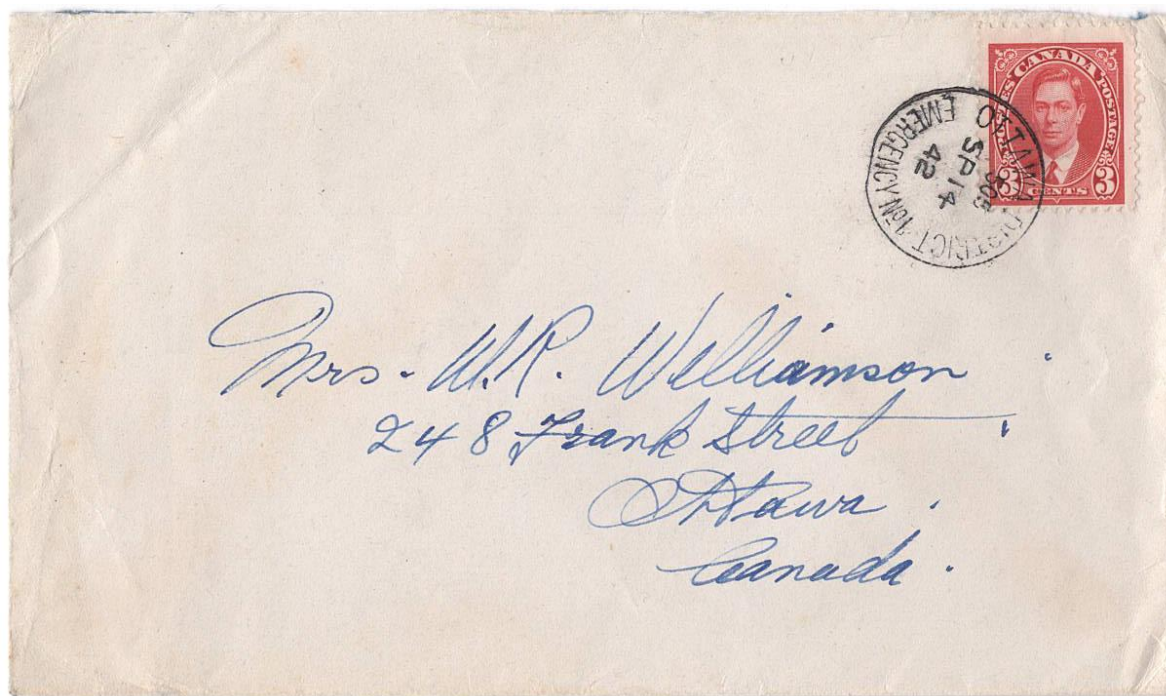 POSTES CANADA POSTAGE
3 CENTS 3
OTTAWA DISTRICT
EMERGENCY No 1
SP 14
42
Mrs. W.R. Williamson
248 Frank Street
Ottawa.
Canada.